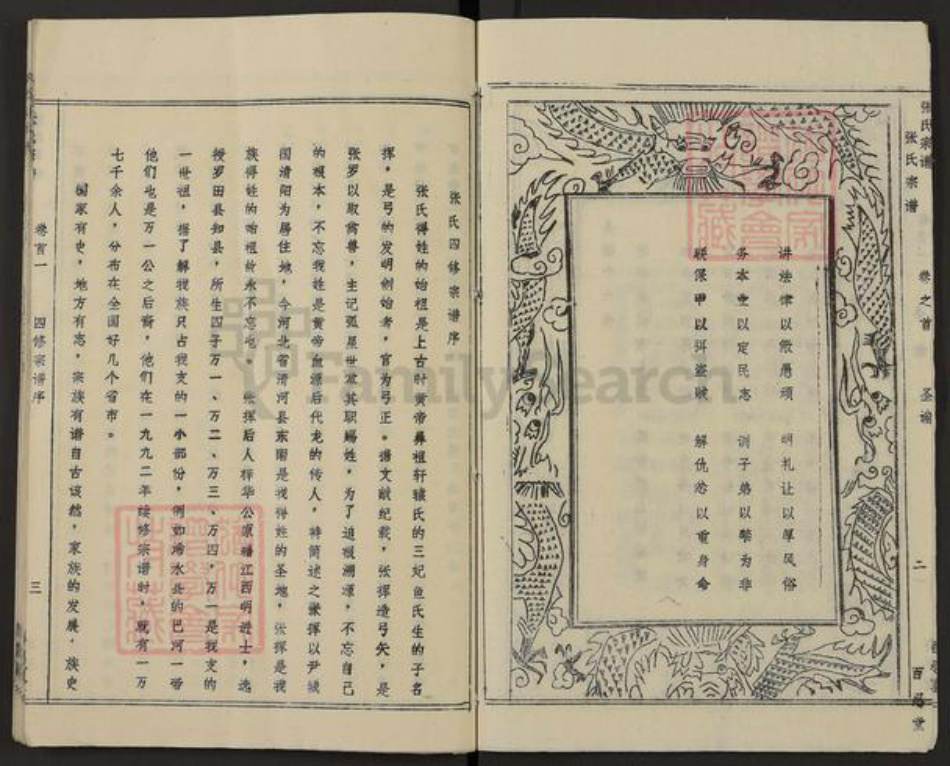 张氏宗谱
卷之首
圣谕
二
百忍堂
张氏宗谱
讲法律以儆愚顽 明礼让以厚风俗
务本业以定民志 训子弟以禁为非
联保甲以弭盗贼 解仇忿以重身命
张氏四修宗谱序
张氏得姓的始祖是上古时黄帝彝祖轩辕氏的三妃鱼氏生的子名
挥，是弓的发明创始者，官为弓正。谱文献纪载，张挥造弓矢，是
张罗以取禽兽，主记弧星世掌其职赐姓，为了追根溯源，不忘自己
的根本，不忘我姓是黄帝血源后代龙的传人，特简述之张挥以尹城
国清阳为居住地，今河北省清河县东南是我得姓的圣地，张挥是我
族得姓的始祖始永不忘也。张挥后人祥华公原籍江西明进士，选
授罗田县知县，所生四子万一、万二、万三、万四，万一是我支的
一世祖，据了解我族只占我支的一小部份，例如浠水县的巴河一带
他们也是万一公之后裔，他们在一九九二年续修宗谱时，就有一万
七千余人，分布在全国好几个省市。
国家有史，地方有志，宗族有谱自古该然，家族的发展，族史
卷首一
四修宗谱序
三
FamilySearch